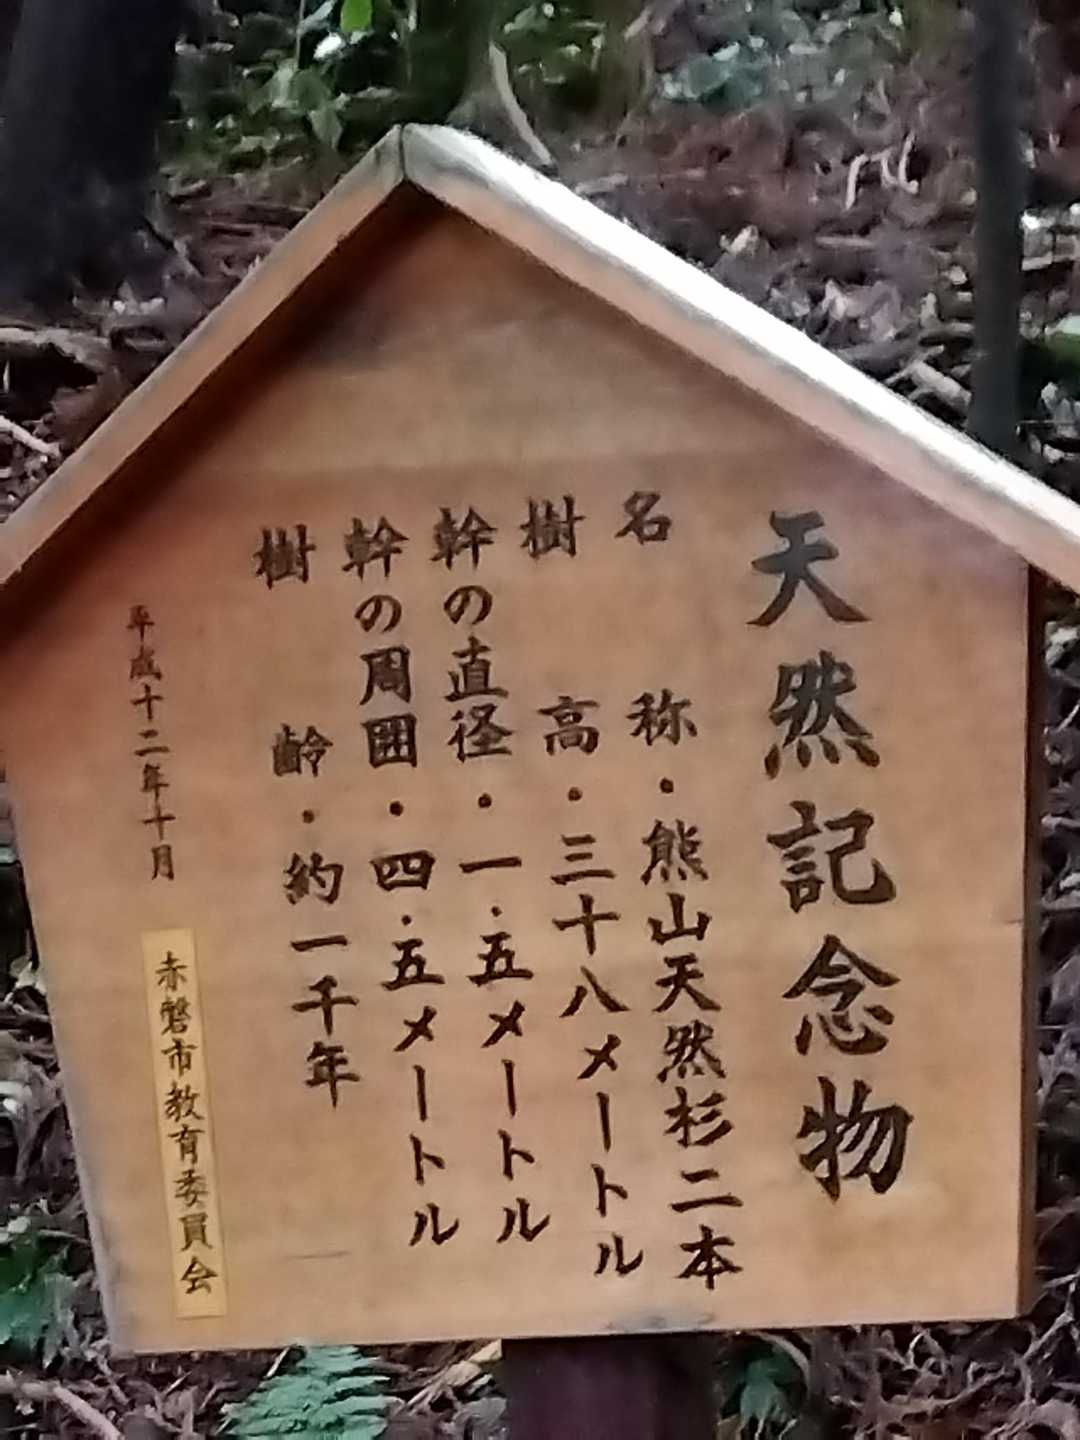 天然記念物
名称・熊山天然杉二本
樹高・三十八メートル
幹の直径・一・五メートル
幹の周囲・四・五メートル
樹齢・約一千年
平成十二年十月
赤磐市教育委員会